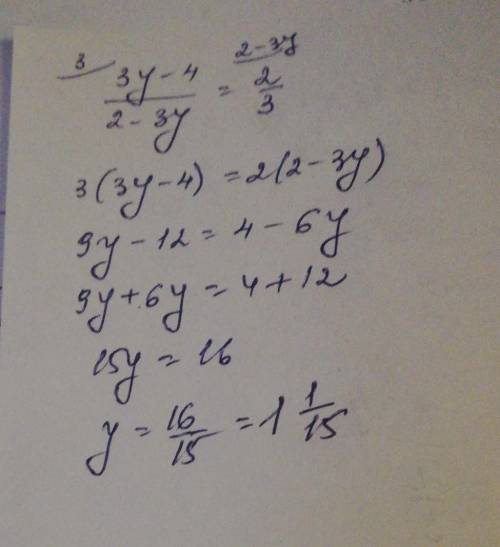 3 (3y-4)/(2-3y) = 2/3 2-3y
3(3y-4) = 2(2-3y)
9y-12 = 4-6y
9y+6y = 4+12
15y = 16
y = 16/15 = 1 1/15